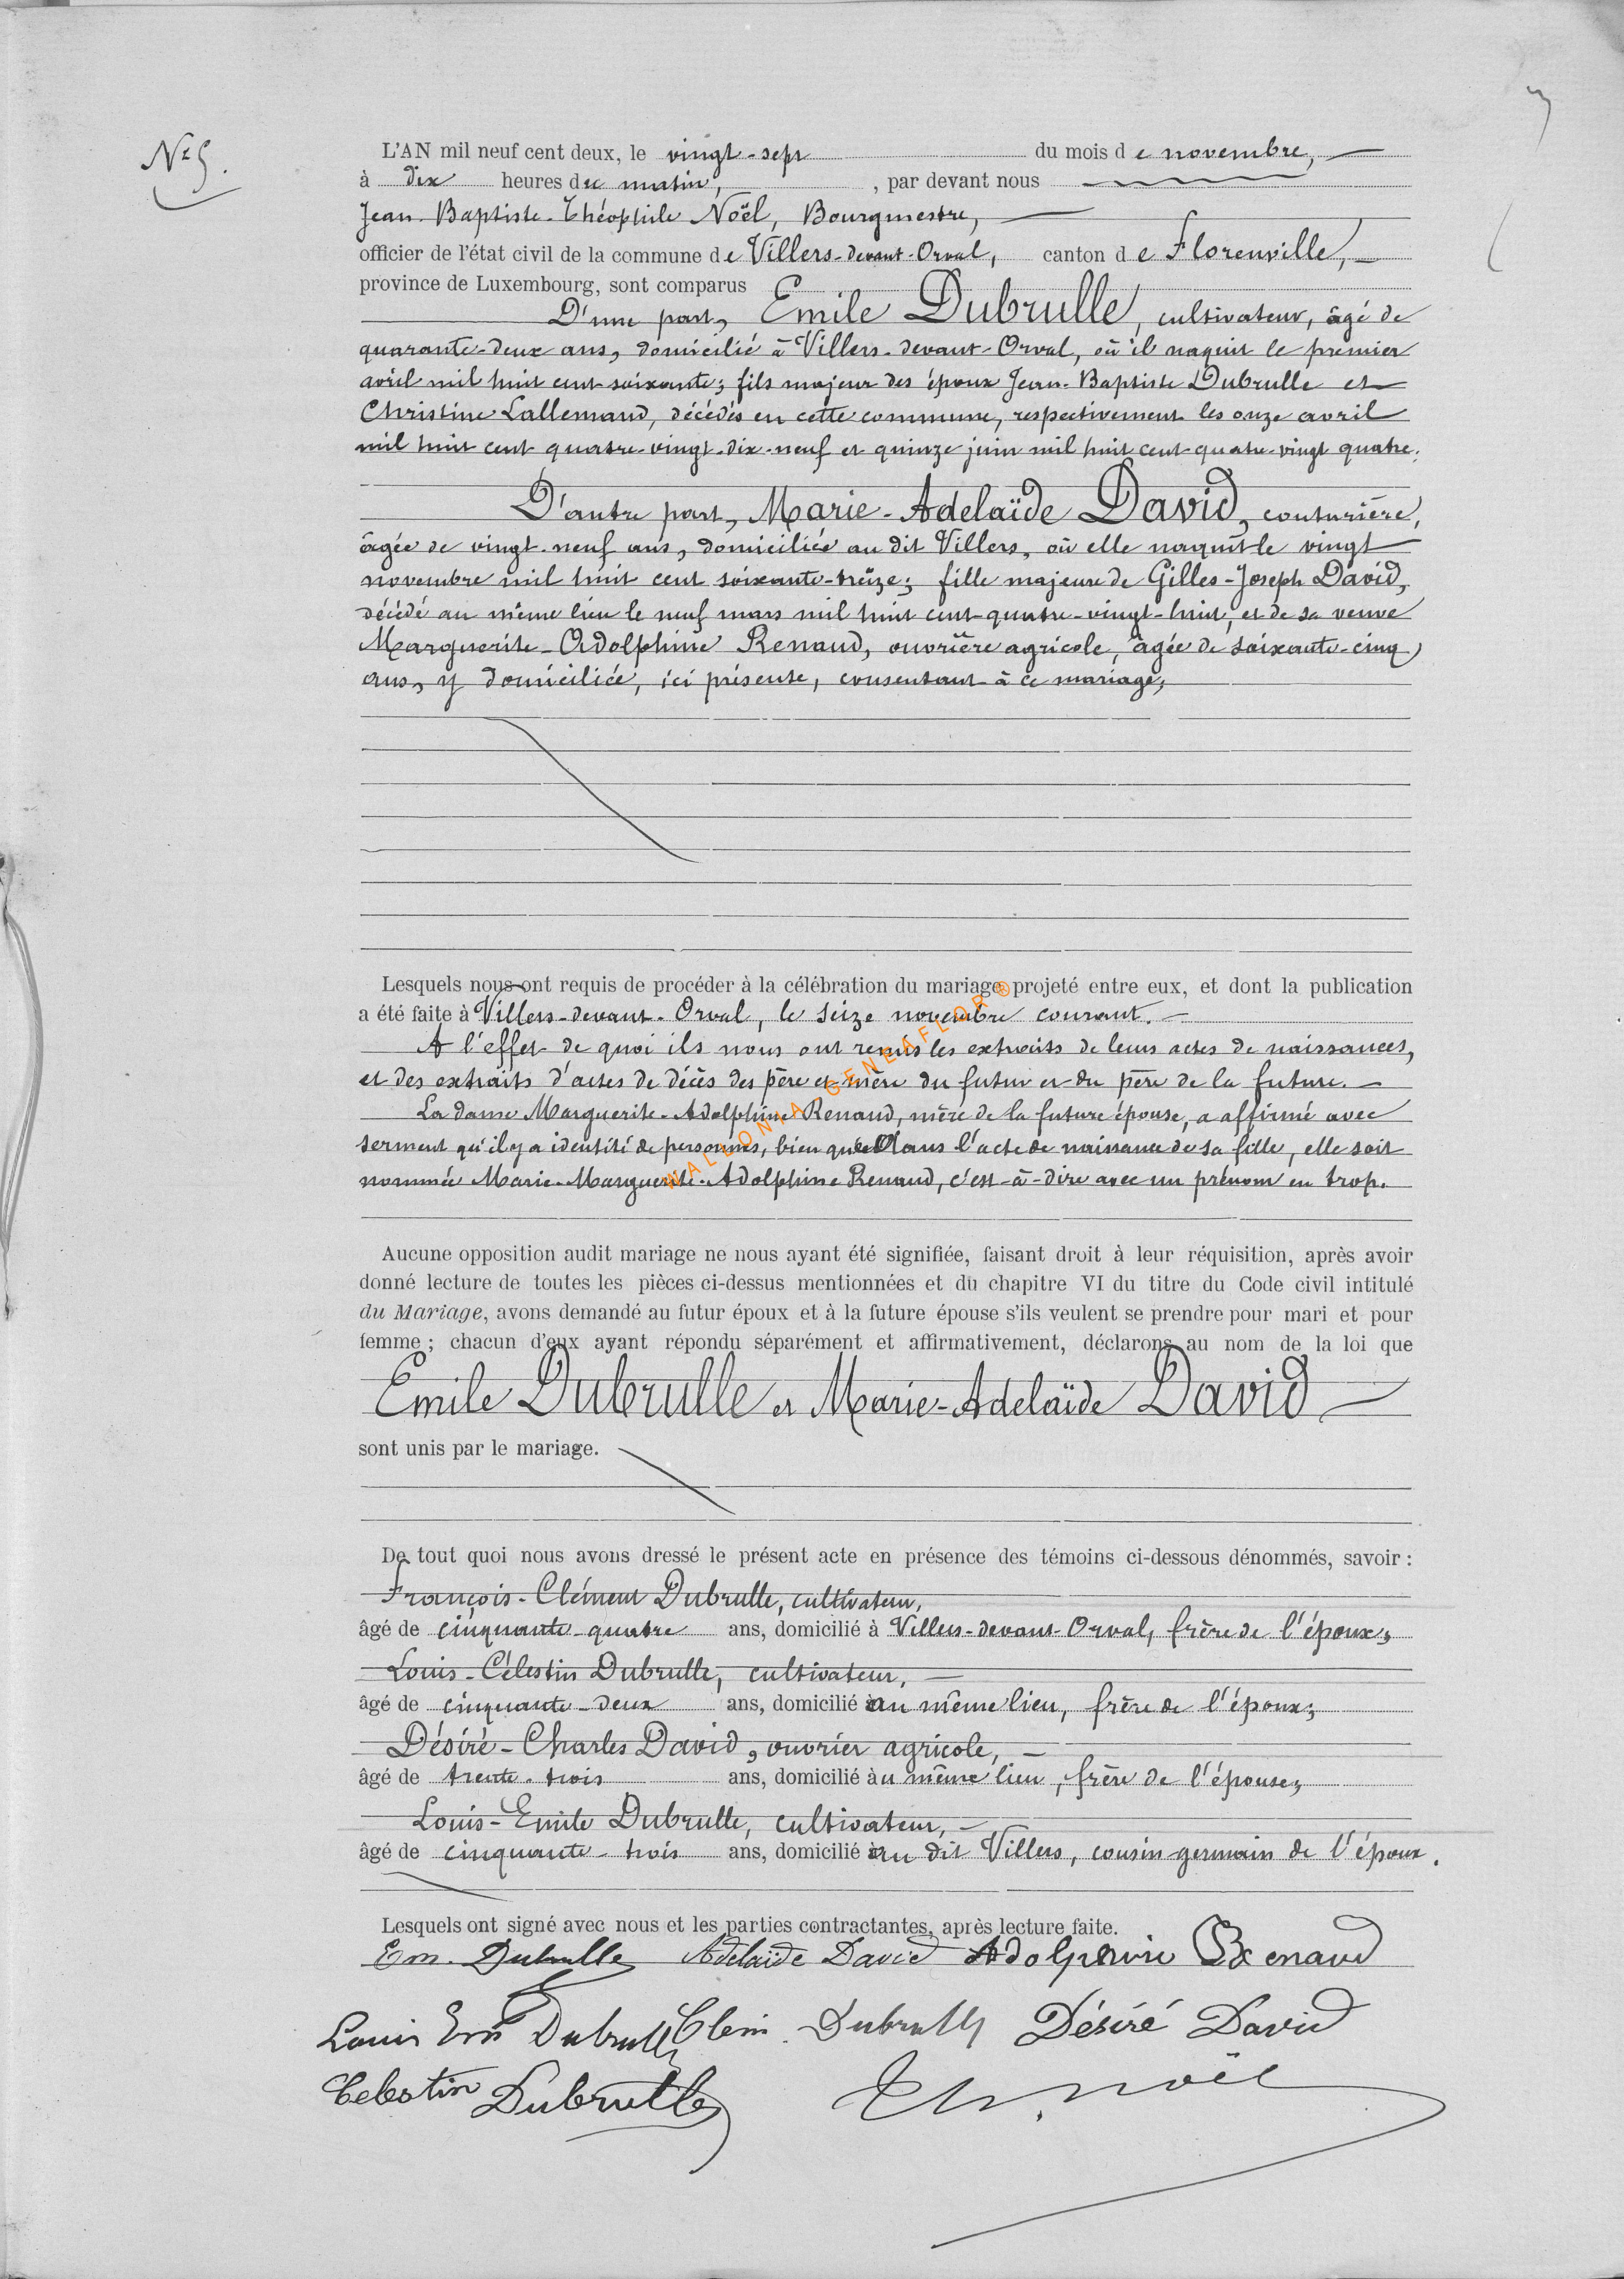 N° 5.
L'AN mil neuf cent deux, le vingt-sept du mois de novembre,
à dix heures du matin, , par devant nous
Jean-Baptiste-Théophile Noël, Bourgmestre,
officier de l'état civil de la commune de Villers-devant-Orval, canton de Florenville,
province de Luxembourg, sont comparus
D'une part, Emile Dubrulle, cultivateur, âgé de
quarante-deux ans, domicilié à Villers-devant-Orval, où il naquit le premier
avril mil huit cent soixante; fils majeur des époux Jean-Baptiste Dubrulle et
Christine Lallemand, décédés en cette commune, respectivement les onze avril
mil huit cent quatre-vingt-dix-neuf et quinze juin mil huit cent quatre-vingt quatre.
D'autre part, Marie-Adelaïde David, couturière,
âgée de vingt-neuf ans, domiciliée au dit Villers, où elle naquit le vingt
novembre mil huit cent soixante-treize; fille majeure de Gilles-Joseph David,
décédé au même lieu le neuf mars mil huit cent quatre-vingt-huit, et de sa veuve
Marguerite-Adolphine Renaud, ouvrière agricole, âgée de soixante-cinq
ans, y domiciliée, ici présente, consentant à ce mariage;
Lesquels nous ont requis de procéder à la célébration du mariage projeté entre eux, et dont la publication
a été faite à Villers-devant-Orval, le seize novembre courant.
A l'effet de quoi ils nous ont remis les extraits de leurs actes de naissances,
et des extraits d'actes de décès des père et mère du futur et du père de la future.
La dame Marguerite-Adolphine Renaud, mère de la future épouse, a affirmé avec
serment qu'il y a identité de personnes, bien que dans l'acte de naissance de sa fille, elle soit
nommée Marie-Marguerite-Adolphine Renaud, c'est-à-dire avec un prénom en trop.
WALLONIA-GENEAFLOR®
Aucune opposition audit mariage ne nous ayant été signifiée, faisant droit à leur réquisition, après avoir
donné lecture de toutes les pièces ci-dessus mentionnées et du chapitre VI du titre du Code civil intitulé
du Mariage, avons demandé au futur époux et à la future épouse s'ils veulent se prendre pour mari et pour
femme ; chacun d'eux ayant répondu séparément et affirmativement, déclarons au nom de la loi que
Emile Dubrulle et Marie-Adelaïde David
sont unis par le mariage.
De tout quoi nous avons dressé le présent acte en présence des témoins ci-dessous dénommés, savoir :
François-Clément Dubrulle, cultivateur,
âgé de cinquante-quatre ans, domicilié à Villers-devant-Orval, frère de l'époux;
Louis-Célestin Dubrulle, cultivateur,
âgé de cinquante-deux ans, domicilié au même lieu, frère de l'époux;
Désiré-Charles David, ouvrier agricole,
âgé de trente-trois ans, domicilié au même lieu, frère de l'épouse;
Louis-Emile Dubrulle, cultivateur,
âgé de cinquante-trois ans, domicilié au dit Villers, cousin germain de l'époux.
Lesquels ont signé avec nous et les parties contractantes, après lecture faite.
Em. Dubrulle Adelaïde David Adolphine Renaud
Louis Em Dubrulle Clém. Dubrulle Désiré David
Celestin Dubrulle Th. Noël